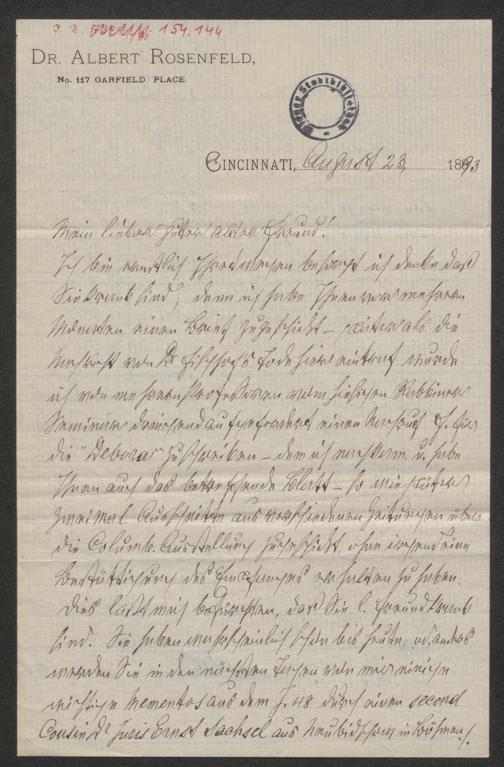 154.144
DR. ALBERT ROSENFELD,
No. 117 GARFIELD PLACE.
Wiener Stadtbibliothek
CINCINNATI, August 23, 1893
Mein lieber guter alter Freund!
Ich bin ernstlich Ihretwegen besorgt ich denke daß
Sie krank sind; denn ich habe Ihnen vor mehreren
Monaten einen Brief zugeschickt – später als die
Nachricht von Dr Fischhof's Tode hier eintraf wurde
ich von mehreren Professoren vom hiesigen Rabbiner
Seminar dringend aufgefordert einen Nachruf f. für
die "Debora" zu schreiben – dem ich nachkam u. habe
Ihnen auch das betreffende Blatt – so wie später
zweimal Ausschnitte aus verschiedenen Zeitungen über
die Columb. Ausstellung zugeschickt, ohne irgend eine
Bestättigung des Empfanges erhalten zu haben.
Dies läßt mich befürchten, daß Sie l. Freund krank
sind. Sie haben wahrscheinlich schon bis heute, od. anders
werden Sie in den nächsten Tagen von mir einige
wichtige Mementos aus dem J. 48 durch einen second
Cousin Dr Juris Ernst Sachsel aus Neubidschow in Böhmen